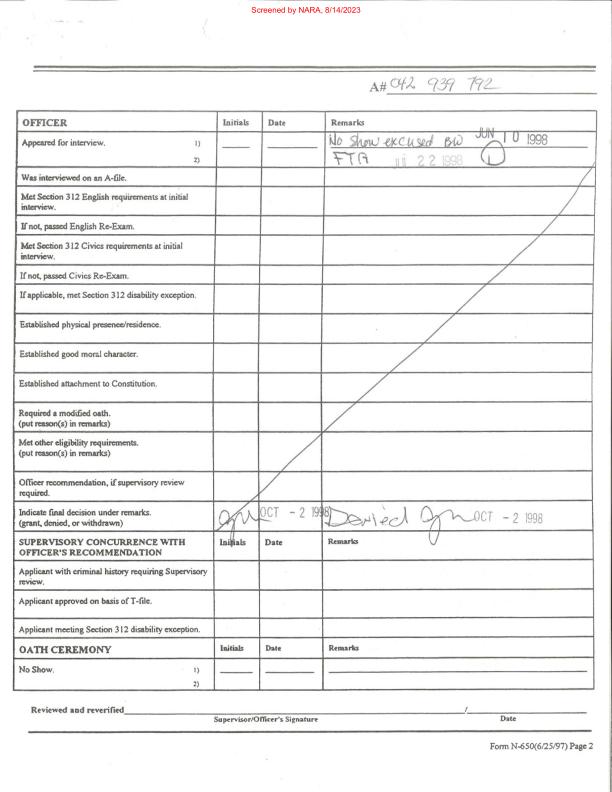 Screened by NARA, 8/14/2023
A# 042 939 792
OFFICER Initials Date Remarks
Appeared for interview. 1) No Show excused BW JUN 10 1998
2) FTA 22 1998
Was interviewed on an A-file.
Met Section 312 English requirements at initial
interview.
If not, passed English Re-Exam.
Met Section 312 Civics requirements at initial
interview.
If not, passed Civics Re-Exam.
If applicable, met Section 312 disability exception.
Established physical presence/residence.
Established good moral character.
Established attachment to Constitution.
Required a modified oath.
(put reason(s) in remarks)
Met other eligibility requirements.
(put reason(s) in remarks)
Officer recommendation, if supervisory review
required.
Indicate final decision under remarks. OCT - 2 1998 Denied OCT - 2 1998
(grant, denied, or withdrawn)
SUPERVISORY CONCURRENCE WITH Initials Date Remarks
OFFICER'S RECOMMENDATION
Applicant with criminal history requiring Supervisory
review.
Applicant approved on basis of T-file.
Applicant meeting Section 312 disability exception.
OATH CEREMONY Initials Date Remarks
No Show. 1)
2)
Reviewed and reverified / 
Supervisor/Officer's Signature Date
Form N-650(6/25/97) Page 2